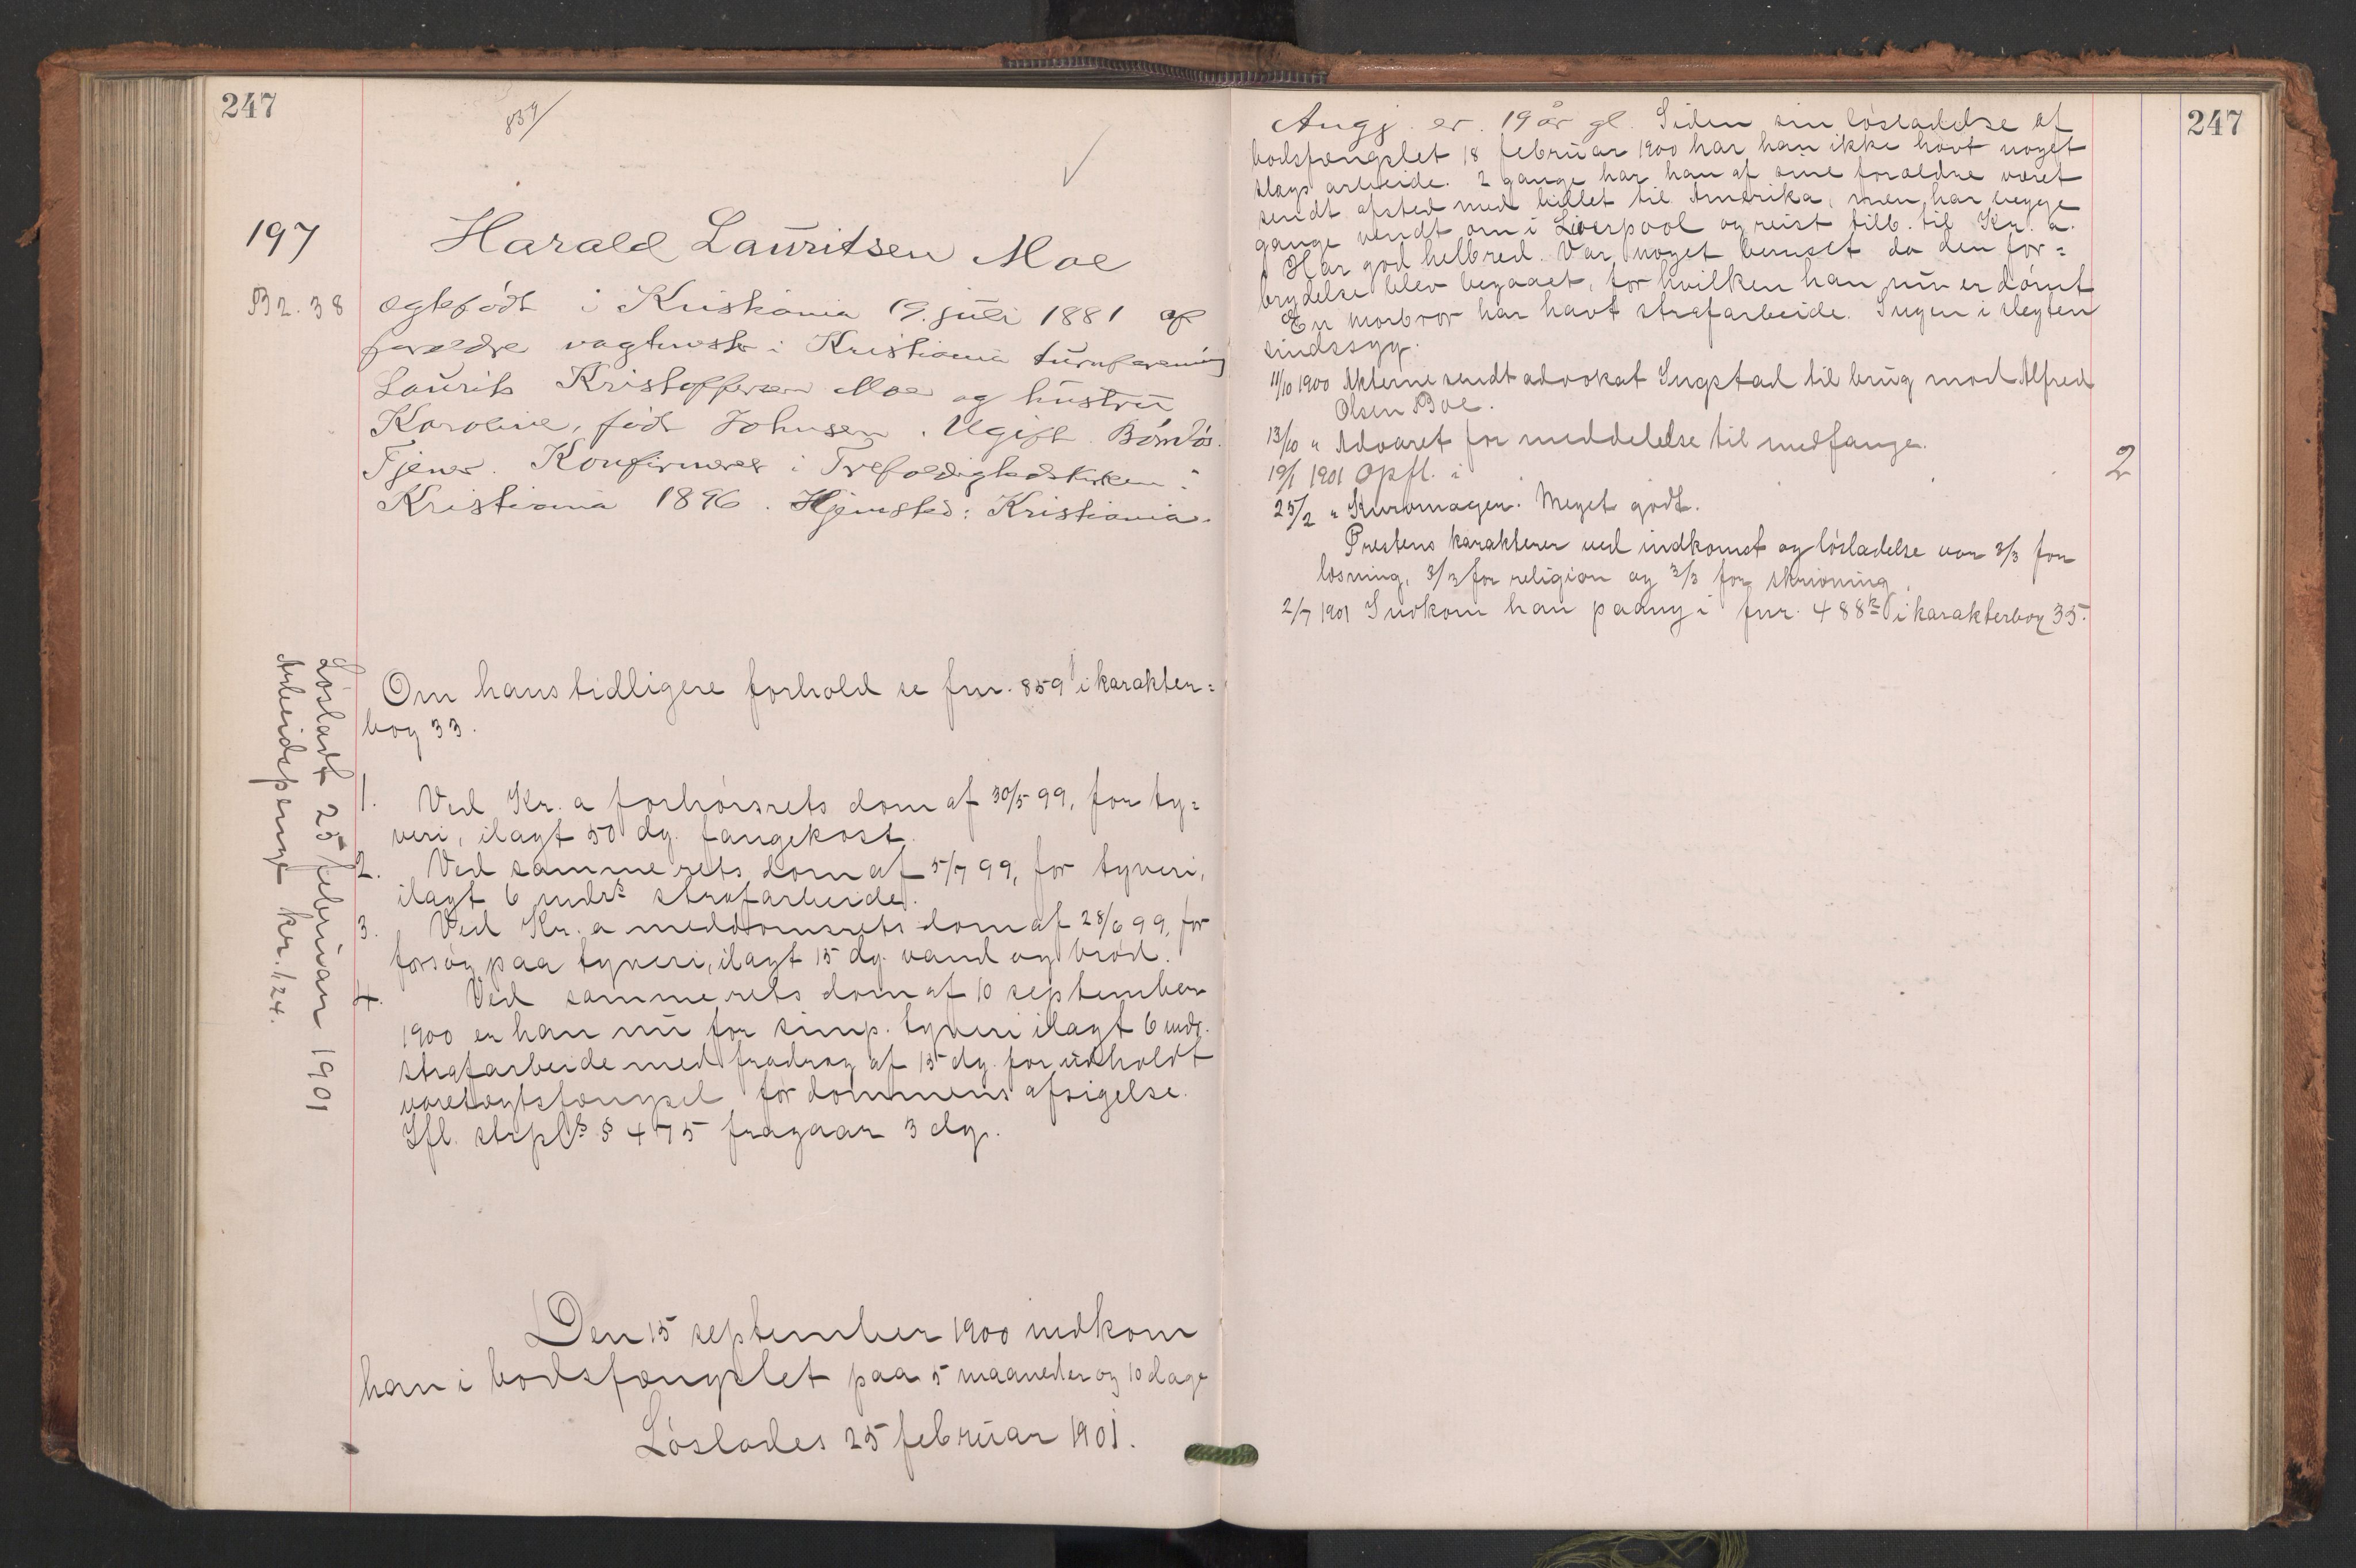 247
859/
197
B2. 38
Harald Lauritsen Moe
ægtefødt i Kristiania 19. juli 1881 af
forældre vagtmester i Kristiania turnforening
Laurits Kristoffersen Moe og hustru
Karoline, født Johnsen. Ugift. Barnløs.
Tjener. Konfirmeret i Trefoldighedskirken i
Kristiania 1896. Hjemsted: Kristiania.
Om hans tidligere forhold se fnr. 859 i karakter=
bog 33.
1. Ved Kr. a forhørsrets dom af 30/5 99, for ty=
veri, ilagt 50 dg. fangekost.
2. Ved samme rets dom af 5/7 99, for tyveri,
ilagt 6 mdrs strafarbeide.
3. Ved Kr. a meddomsrets dom af 28/6 99, for
forsøg paa tyveri, ilagt 15 dg. vand og brød.
4. Ved samme rets dom af 10 september
1900 er han nu for simp. tyveri ilagt 6 mdr.
strafarbeide med fradrag af 15 dg. for udholdt
varetægtsfængsel før dommens afsigelse.
Ifl. strpls § 475 fragaar 3 dg.
Den 15 september 1900 indkom
han i bodsfængslet paa 5 maaneder og 10 dage
Løslades 25 februar 1901.
Løsladt 25 februar 1901
Arbeidspenge kr. 1.24.
247
Angj. er 19 år gl. Siden sin løsladelse af
bodsfængslet 18 februar 1900 har han ikke havt noget
slags arbeide. 2 gange har han af sine forældre været
sendt afsted med billet til Amerika, men har begge
gange vendt om i Liverpool og reist tilb. til Kr. a.
Har god helbred. Var noget beruset da den for=
brydelse blev begaaet, for hvilken han nu er dømt
En morbror har havt strafarbeide. Ingen i slegten
sindssyg.
11/10 1900 Akterne sendt advokat Ingstad til brug mod Alfred
Olsen Boe.
13/10 " Advaret for meddelelse til medfange.
19/1 1901 Opfl. i
2
25/2 " Kurvmager. Meget godt.
Prestens karakterer ved indkomst og løsladelse var 3/3 for
læsning, 3/3 for religion og 3/3 for skrivning.
2/7 1901 Indkom han paany i fnr. 488 i karakterbog 35.